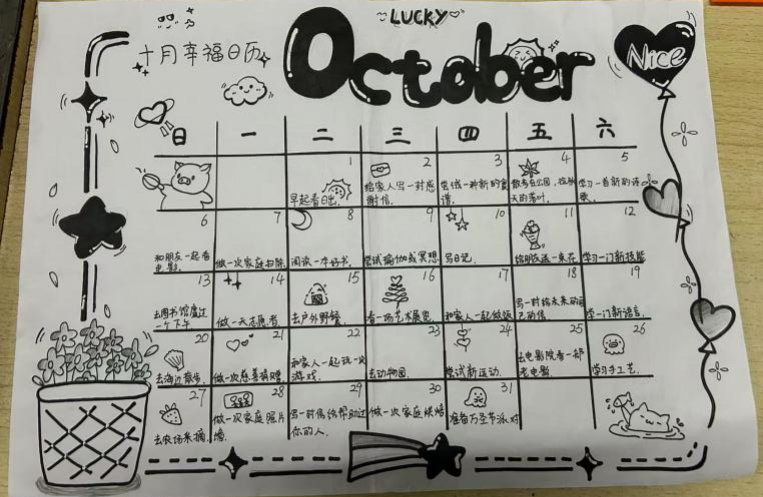 LUCKY
October
Nice
十月幸福日历
日 一 二 三 四 五 六
1 2 3 4 5
早起看日出.
给家人写一封感
谢信.
尝试一种新的食
谱.
散步在公园,
天的落叶.
学习一首新的诗
歌.
6 7 8 9 10 11 12
和朋友一起看
电影.
做一次家庭扫除
阅读一本好书.
尝试瑜伽或冥想
写日记.
给朋友送一束花
学习一门新技能
13 14 15 16 17 18 19
去图书馆度过
一个下午
做一天志愿者
去户外野餐.
看一场艺术展览
和家人一起做饭
写一封给未来的自
己的信.
学一门新语言.
20 21 22 23 24 25 26
去海边散步.
做一次慈善捐赠.
和家人一起玩一次
游戏.
去动物园.
尝试新运动.
去电影院看一部
老电影.
学习手工艺.
27 28 29 30 31
去农场采摘.
做一次家庭照片
墙.
写一封信给帮助过
你的人.
做一次家庭烘焙
准备万圣节派对